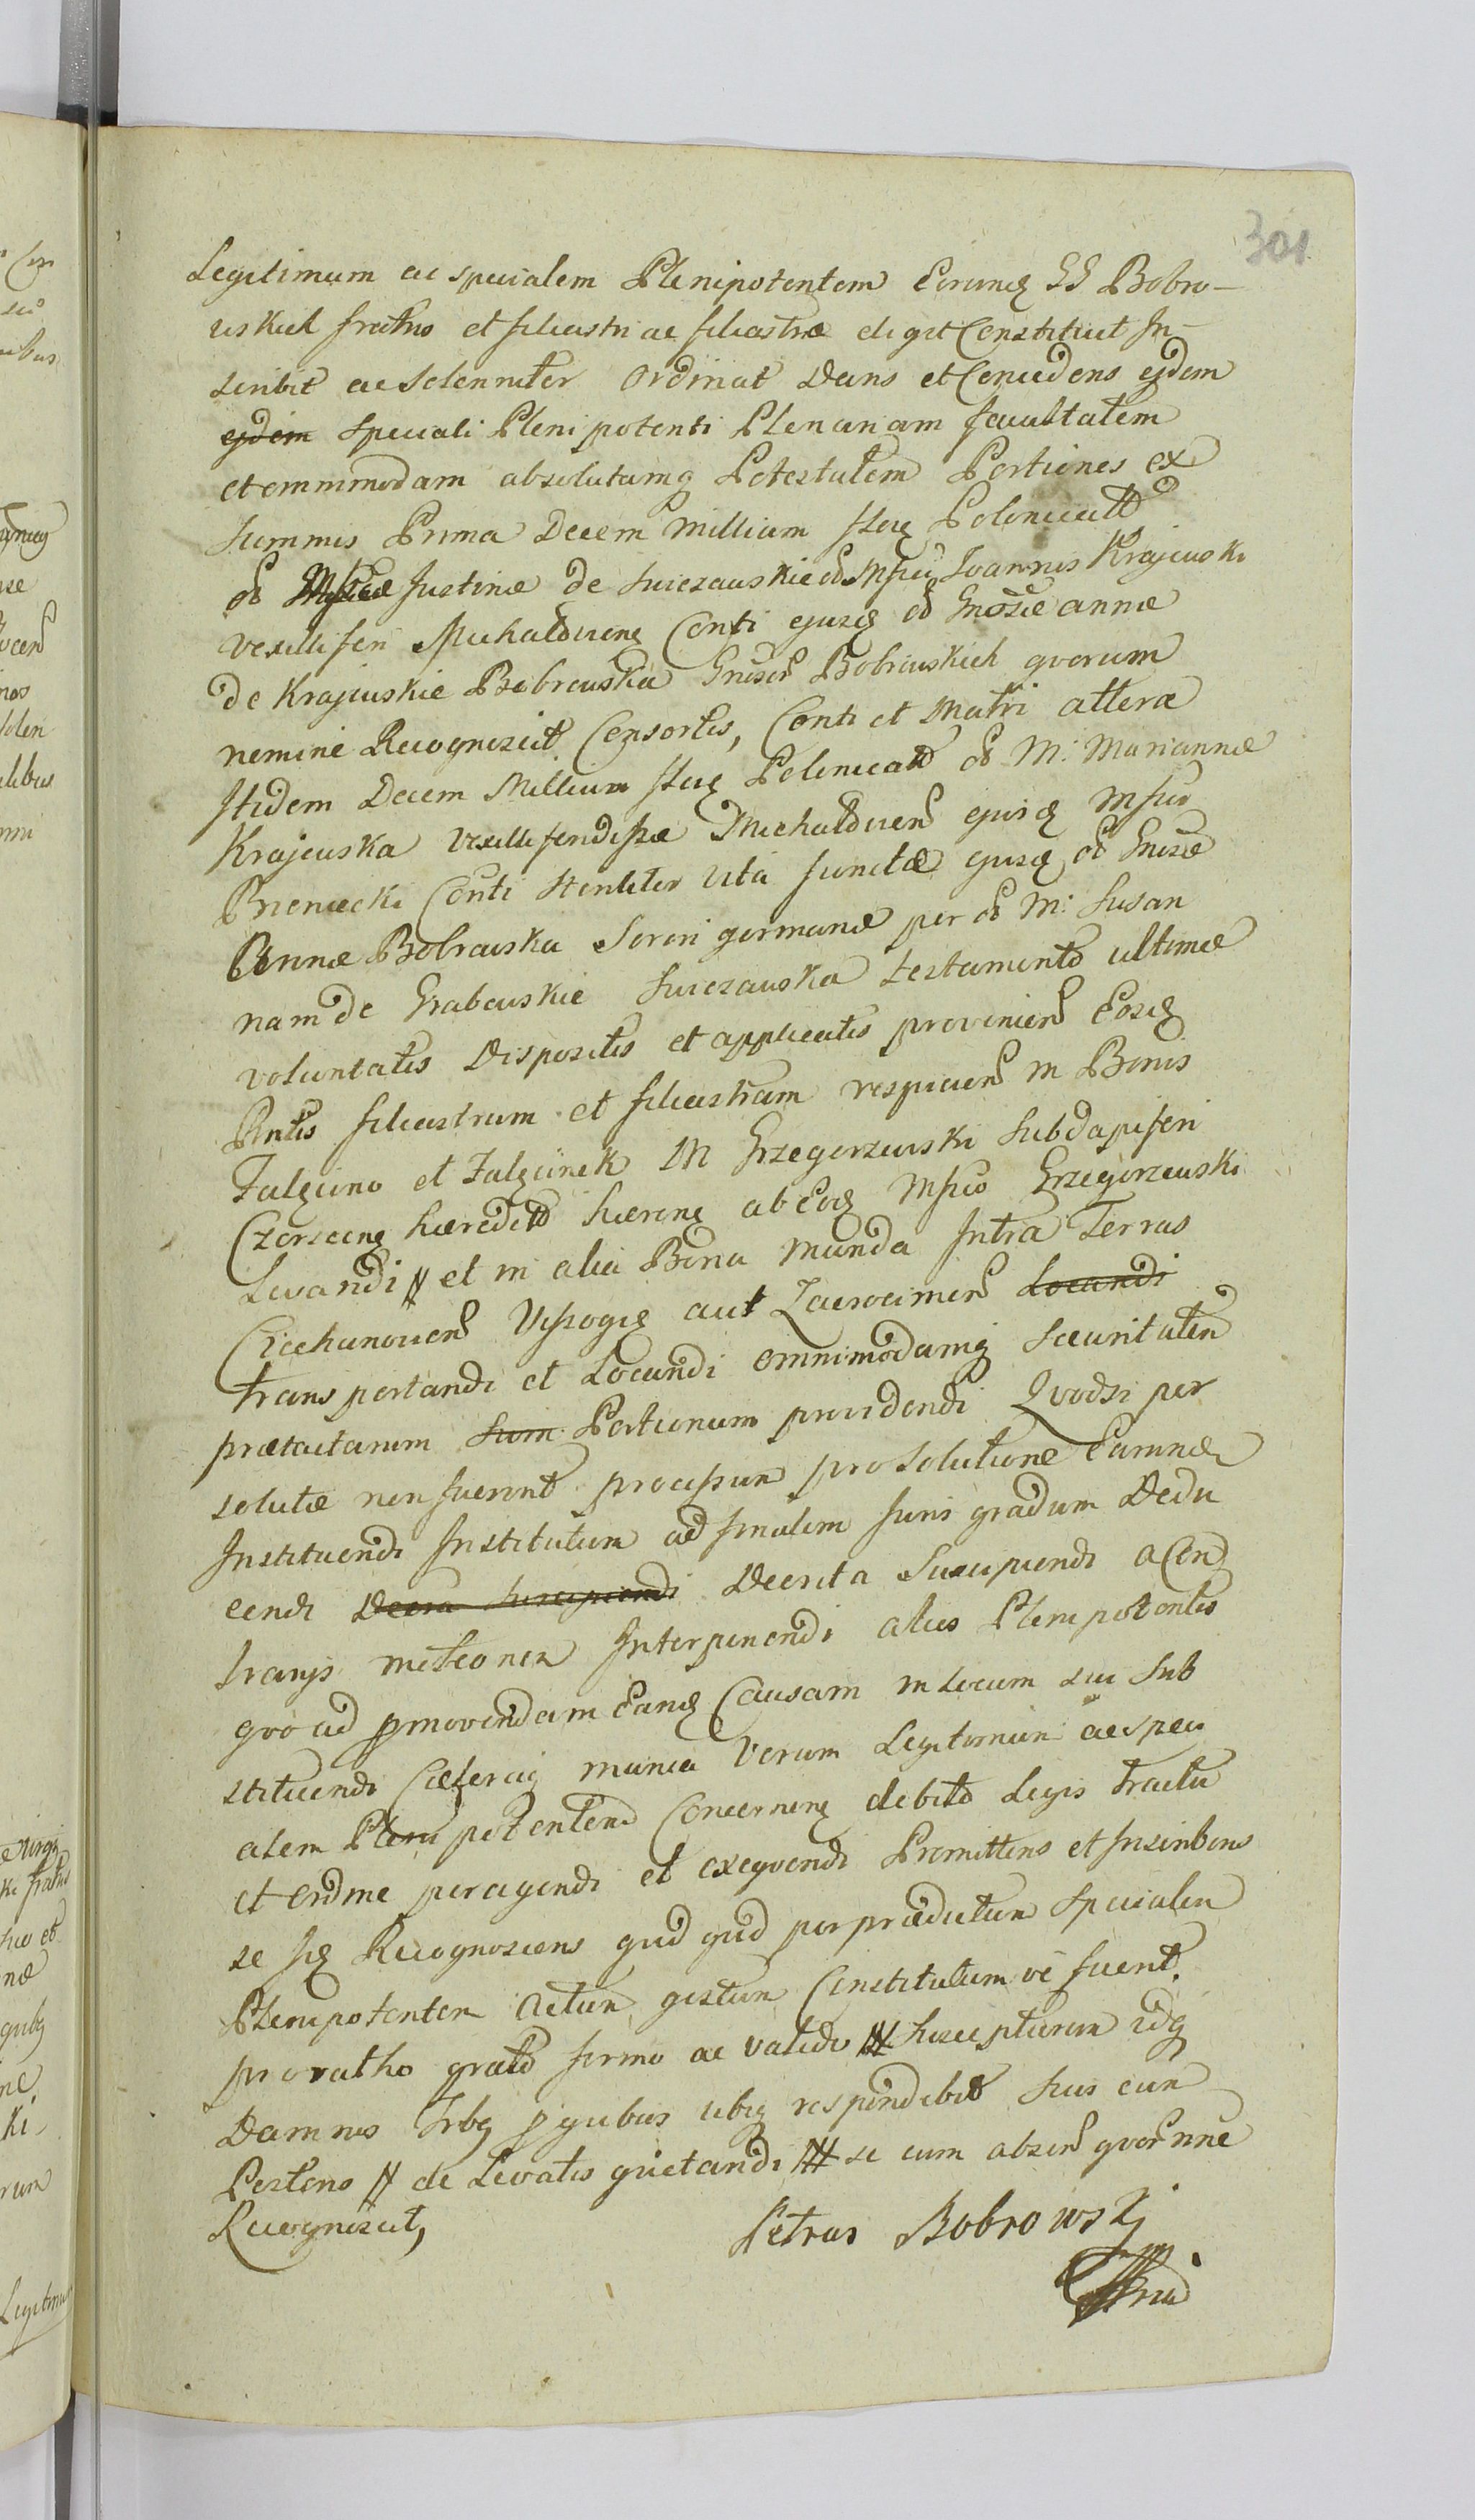 301
Legitimum ac specialem Plenipotentem Eorumq GG Bobro-
wskich fratris et filiastri ac filiastræ eligit Constituit In-
scribit ac Solenniter Ordinat Dans et Concedens ejdem
ejdem Speciali Plenipotenti Plenariam facultatem
et omnimodam absolutamq Potestatem Portiones ex
Summis Prima Decem Millium flor Polonical
ol Mgficæ Justinæ de Swiezawskie ol Mfici Joannis Krajewski
Vexilliferi Michalovien Conti ejusq ol Gnosæ Annæ
de Krajewskie Bobrowska Gnosor Bobrowskich qvorum
nomine Recognoscit Consortis, Conti et Matri altera
Itidem Decem Millium flor Polonical ol M: Mariannæ
Krajewska Vexilliferidissæ Michalovien ejusq Mfico
Prieniecki Conti Steriliter Vita functæ ejusq ol Gnosæ
Annæ Bobrowska Sorori germanæ per ol M: Susan
nam de Grabowskie Swiezawska testamento ultimæ
voluntatis Dispositis et applicatis provenien Eosq
Pntis filiastrum et filiastram respicien in Bonis
Falęcino et Falęcinek M Grzegorzewski Subdapiferi
Czerscen hæredit hæren ab Eoq Mfico Grzegorzewski
Levandi // et in alia Bona munda Intra Terras
Ciechanovien Vissogr aut Zacrocimen Locandi
transportandi et Locandi omnimodamq Securitatem
prætactarum Sum Portionum providendi Qvodsi per
solutæ non fuerint processum pro Solutione Earumq
Instituendi Institutum ad finalem Juris gradum Dedu
cendi Decra Suscipiendi Decreta Suscipiendi a Con
trarijs motionem Interponendi alios Plenipotentes
qvo ad pmovendam Eanq Causam in locum sui Sub
stituendi Cæteraq munia Verum Legitimum ac speci
alem Plenipotentem Concernen debito Legis tractu
et ordine peragendi et exeqvendi Promittens et Inscribens
se Recognoscens qvid qvid per prædictum Specialem
Plenipotentem Actum gestum Constitutum ve fuerit
pro ratho grato firmo ac valido # Suscepturum idq
Damnis Trbq pqvibus ubiq respondebit Suis cum
Pestens // de Levatis qvietandi # se cum absen qvor nne
Recognoscit,
Petrus Bobrowski